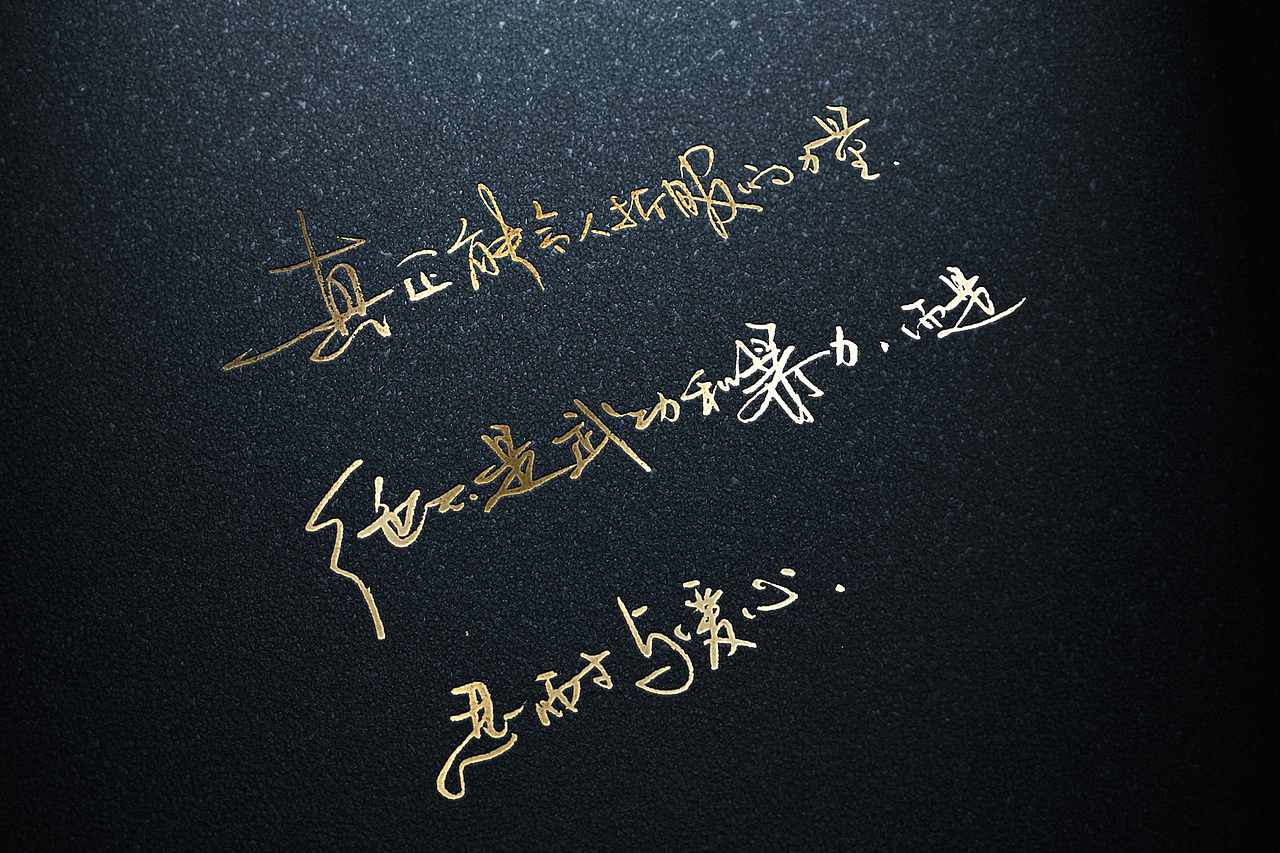 真正能令人折服的力量.
绝不是武功和暴力,而是
忍耐与爱心.